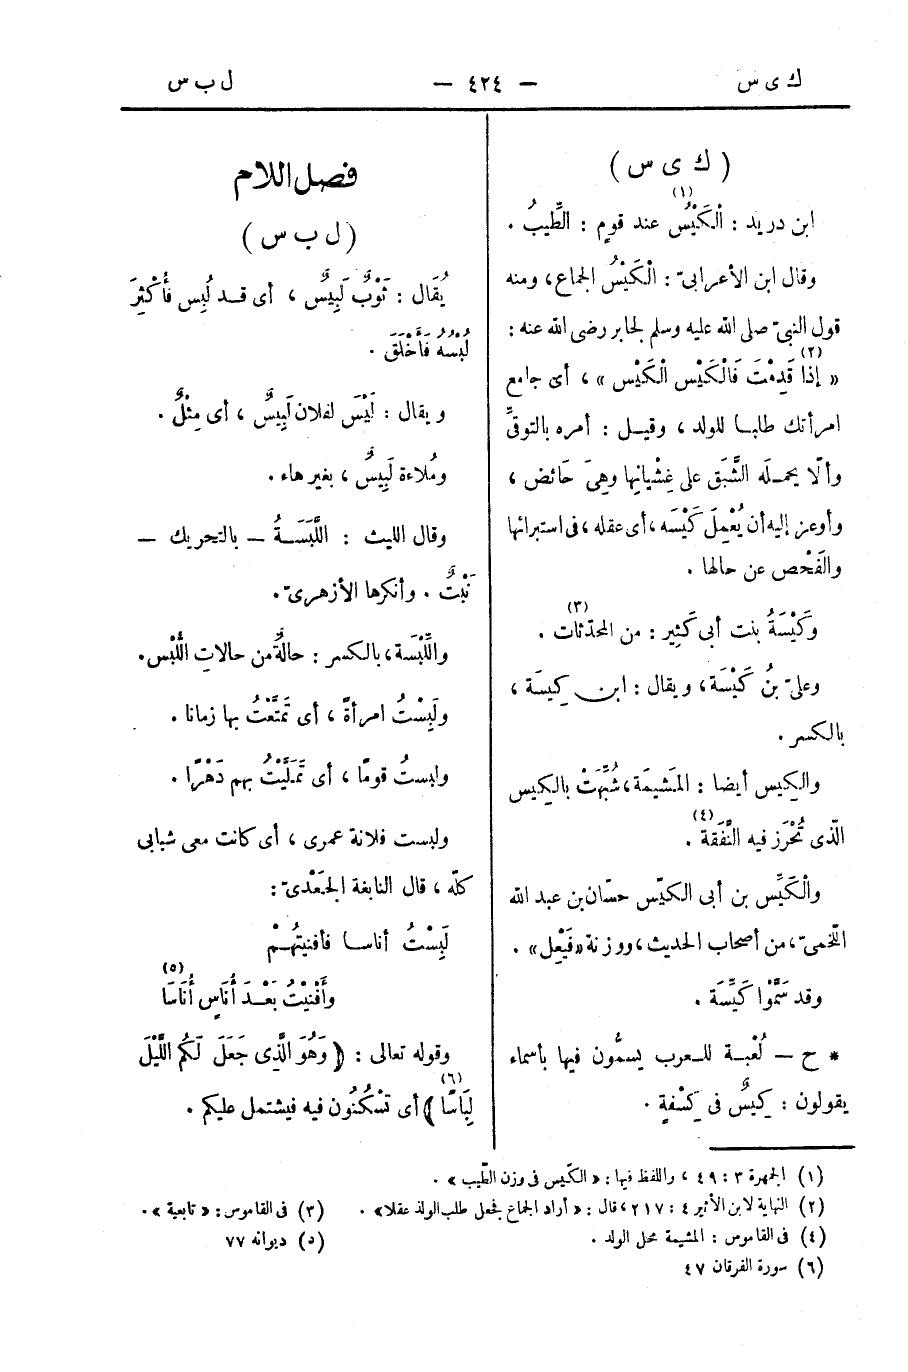 ك ى س — ٤٢٤ — ل ب س
( ك ى س )
ابن دريد : الْكَيْسُ (١) عند قوم : الطِّيبُ .
وقال ابن الأعرابىّ : الْكَيْسُ الجماع ، ومنه
قول النبىّ صلى الله عليه وسلم لجابر رضى الله عنه :
« إذا قَدِمْتَ فَالْكَيْسِ الْكَيْسِ » (٢) ، أى جامع
امرأتك طلبا للولد ، وقيل : أمره بالتوقِّى
وألّا يحمله الشَّبَق على غِشْيانِها وهِىَ حَائض ،
وأوعز إليه أن يُعْمِلَ كَيْسَه ، أى عقله ، فى استبرائها
والفَحْص عن حالها .
وكَيْسَةُ بنت أبى كَثِير : من المحدّثات (٣) .
وعلىّ بنُ كَيْسَة ، ويقال : ابن كِيسَة ،
بالكسر .
والكِيس أيضا : المَشِيمَة ، شُبِّهَتْ بالكِيس
الّذى تُحْرَز فيه النَّفَقة (٤) .
والْكَيِّس بن أبى الكيّس حسّان بن عبد الله
اللّخمىّ ، من أصحاب الحديث ، ووزنة « فَيْعِل » .
وقد سَمَّوْا كَيِّسَة .
* ح — لُعْبة للعرب يسمُّون فيها بأسماء
يقولون : كِيسٌ فى كِسْفةٍ .
فصل اللام
( ل ب س )
يُقَال : ثَوْبٌ لَبِيسٌ ، أى قد لُبِس فأُكْثِرَ
لُبْسُهُ فَأَخْلَقَ .
ويقال : لَيْسَ لفلان لَبِيسٌ ، أى مِثْلٌ .
ومُلاءة لَبِيسٌ ، بغير هاء .
وقال الليث : اللَّبَسَةُ — بالتحريك —
نَبْتٌ . وأنكرها الأزهرىّ .
واللِّبْسَة ، بالكسر : حالةٌ من حالاتِ اللُّبْس .
ولَبِسْتُ امرأةً ، أى تَمَتَّعْتُ بها زمانا .
ولبستُ قومًا ، أى تَمَلَّيْتُ بهم دَهْرًا .
ولبست فلانة عمرى ، أى كانت معى شبابى
كلّه ، قال النابغة الجَعْدىّ :
لَبِسْتُ أناسا فأفنيتُهُمْ
وأَفْنَيْتُ بَعْدَ أُنَاسٍ أُنَاسَا (٥)
وقوله تعالى : ( وَهُوَ الَّذِى جَعَلَ لَكُم اللَّيْلَ
لِبَاسًا ) (٦) أى تَسْكُنُون فيه فيشتمل عليكم .
(١) الجمهرة ٣ : ٤٩ ، واللفظ فيها : « الكَيّس فى وزن الطَّيب » .
(٢) النهاية لابن الأثير ٤ : ٢١٧ ، قال : « أراد الجماع فجعل طلب الولد عقلا » .
(٣) فى القاموس : « تابعية » .
(٤) فى القاموس : المشيمة محل الولد .
(٥) ديوانه ٧٧
(٦) سورة الفرقان ٤٧